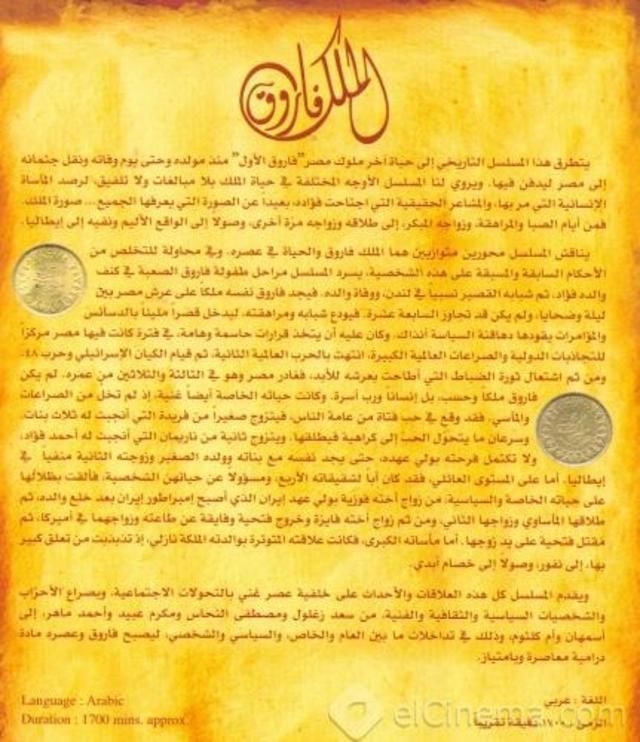 الملك فاروق
يتطرق هذا المسلسل التاريخي إلى حياة آخر ملوك مصر "فاروق الأول" منذ مولده وحتى يوم وفاته ونقل جثمانه
إلى مصر ليدفن فيها. ويروي لنا المسلسل الأوجه المختلفة في حياة الملك بلا مبالغات ولا تلفيق، لرصد المأساة
الإنسانية التي مر بها، والمشاعر الحقيقية التي اجتاحت فؤاده، بعيدا عن الصورة التي يعرفها الجميع... صورة الملك.
فمن أيام الصبا والمراهقة، وزواجه المبكر، إلى طلاقه وزواجه مرة أخرى، وصولا إلى الواقع الأليم ونفيه إلى إيطاليا.
يناقش المسلسل محورين متوازيين هما الملك فاروق والحياة في عصره. وفي محاولة للتخلص من
الأحكام السابقة والمسبقة على هذه الشخصية، يسرد المسلسل مراحل طفولة فاروق الصعبة في كنف
والده فؤاد، ثم شبابه القصير نسبياً في لندن، ووفاة والده. فيجد فاروق نفسه ملكاً على عرش مصر بين
ليلة وضحاها، ولم يكن قد تجاوز السابعة عشرة. فيودع شبابه ومراهقته، ليدخل قصراً مليئا بالدسائس
والمؤامرات يقودها دهاقنة السياسة آنذاك. وكان عليه أن يتخذ قرارات حاسمة وهامة، في فترة كانت فيها مصر مركزاً
للتجاذبات الدولية والصراعات العالمية الكبيرة، انتهت بالحرب العالمية الثانية، ثم قيام الكيان الإسرائيلي وحرب ٤٨.
ومن ثم اشتعال ثورة الضباط التي أطاحت بعرشه للأبد، فغادر مصر وهو في الثالثة والثلاثين من عمره. لم يكن
فاروق ملكاً وحسب، بل إنسانا ورب أسرة. وكانت حياته الخاصة أيضاً غنية، إذ لم تخل من الصراعات
والمآسي. فقد وقع في حب فتاة من عامة الناس، فيتزوج صغيراً من فريدة التي أنجبت له ثلاث بنات،
وسرعان ما يتحول الحب إلى كراهية فيطلقها. ويتزوج ثانية من ناريمان التي أنجبت له أحمد فؤاد،
ولا تكتمل فرحته بولي عهده، حتى يجد نفسه مع بناته وولده الصغير وزوجته الثانية منفياً في
إيطاليا. أما على المستوى العائلي، فقد كان أباً لشقيقاته الأربع، ومسؤولا عن حياتهن الشخصية، فألقت بظلالها
على حياته الخاصة والسياسية: من زواج أخته فوزية بولي عهد إيران الذي أصبح إمبراطور إيران بعد خلع والده، ثم
طلاقها المأساوي وزواجها الثاني، ومن ثم زواج أخته فايزة وخروج فتحية وفايقة عن طاعته وزواجهما في أميركا، ثم
مقتل فتحية على يد زوجها. أما مأساته الكبرى، فكانت علاقته المتوترة بوالدته الملكة نازلي، إذ تذبذبت من تعلق كبير
بها، إلى نفور، وصولا إلى خصام أبدي.
ويقدم المسلسل كل هذه العلاقات والأحداث على خلفية عصر غني بالتحولات الاجتماعية، وبصراع الأحزاب
والشخصيات السياسية والثقافية والفنية، من سعد زغلول ومصطفى النحاس ومكرم عبيد وأحمد ماهر، إلى
أسمهان وأم كلثوم، وذلك في تداخلات ما بين العام والخاص، والسياسي والشخصي، ليصبح فاروق وعصره مادة
درامية معاصرة وبامتياز.
Language : Arabic
Duration : 1700 mins. approx
اللغة : عربي
الزمن : ١٧٠٠ دقيقة تقريبا
elCinema.com